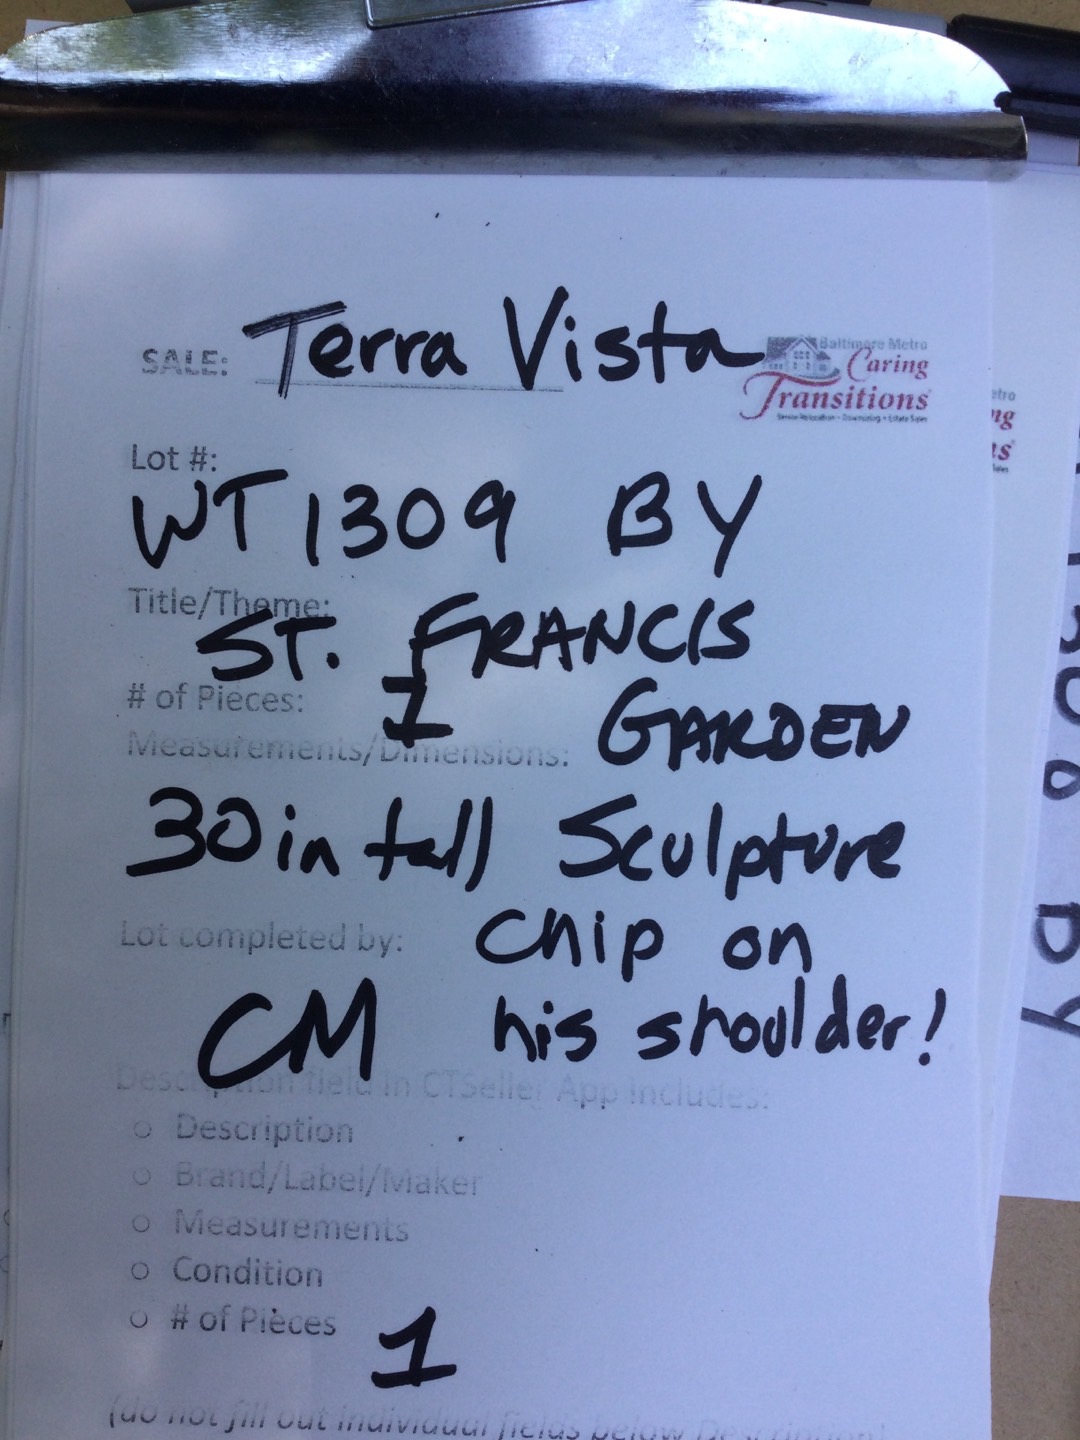 SALE: Terra Vista
Baltimore Metro
Caring
Transitions
Senior Relocation • Downsizing • Estate Sales
Lot #:
WT 1309 BY
Title/Theme:
ST. FRANCIS
# of Pieces: 1 GARDEN
Measurements/Dimensions:
30 in tall Sculpture
Lot completed by: chip on
CM his shoulder!
Description field in CTSeller App includes:
○ Description
○ Brand/Label/Maker
○ Measurements
○ Condition
○ # of Pieces 1
(do not fill out individual fields below Description)
etro
ng
ns
Sales